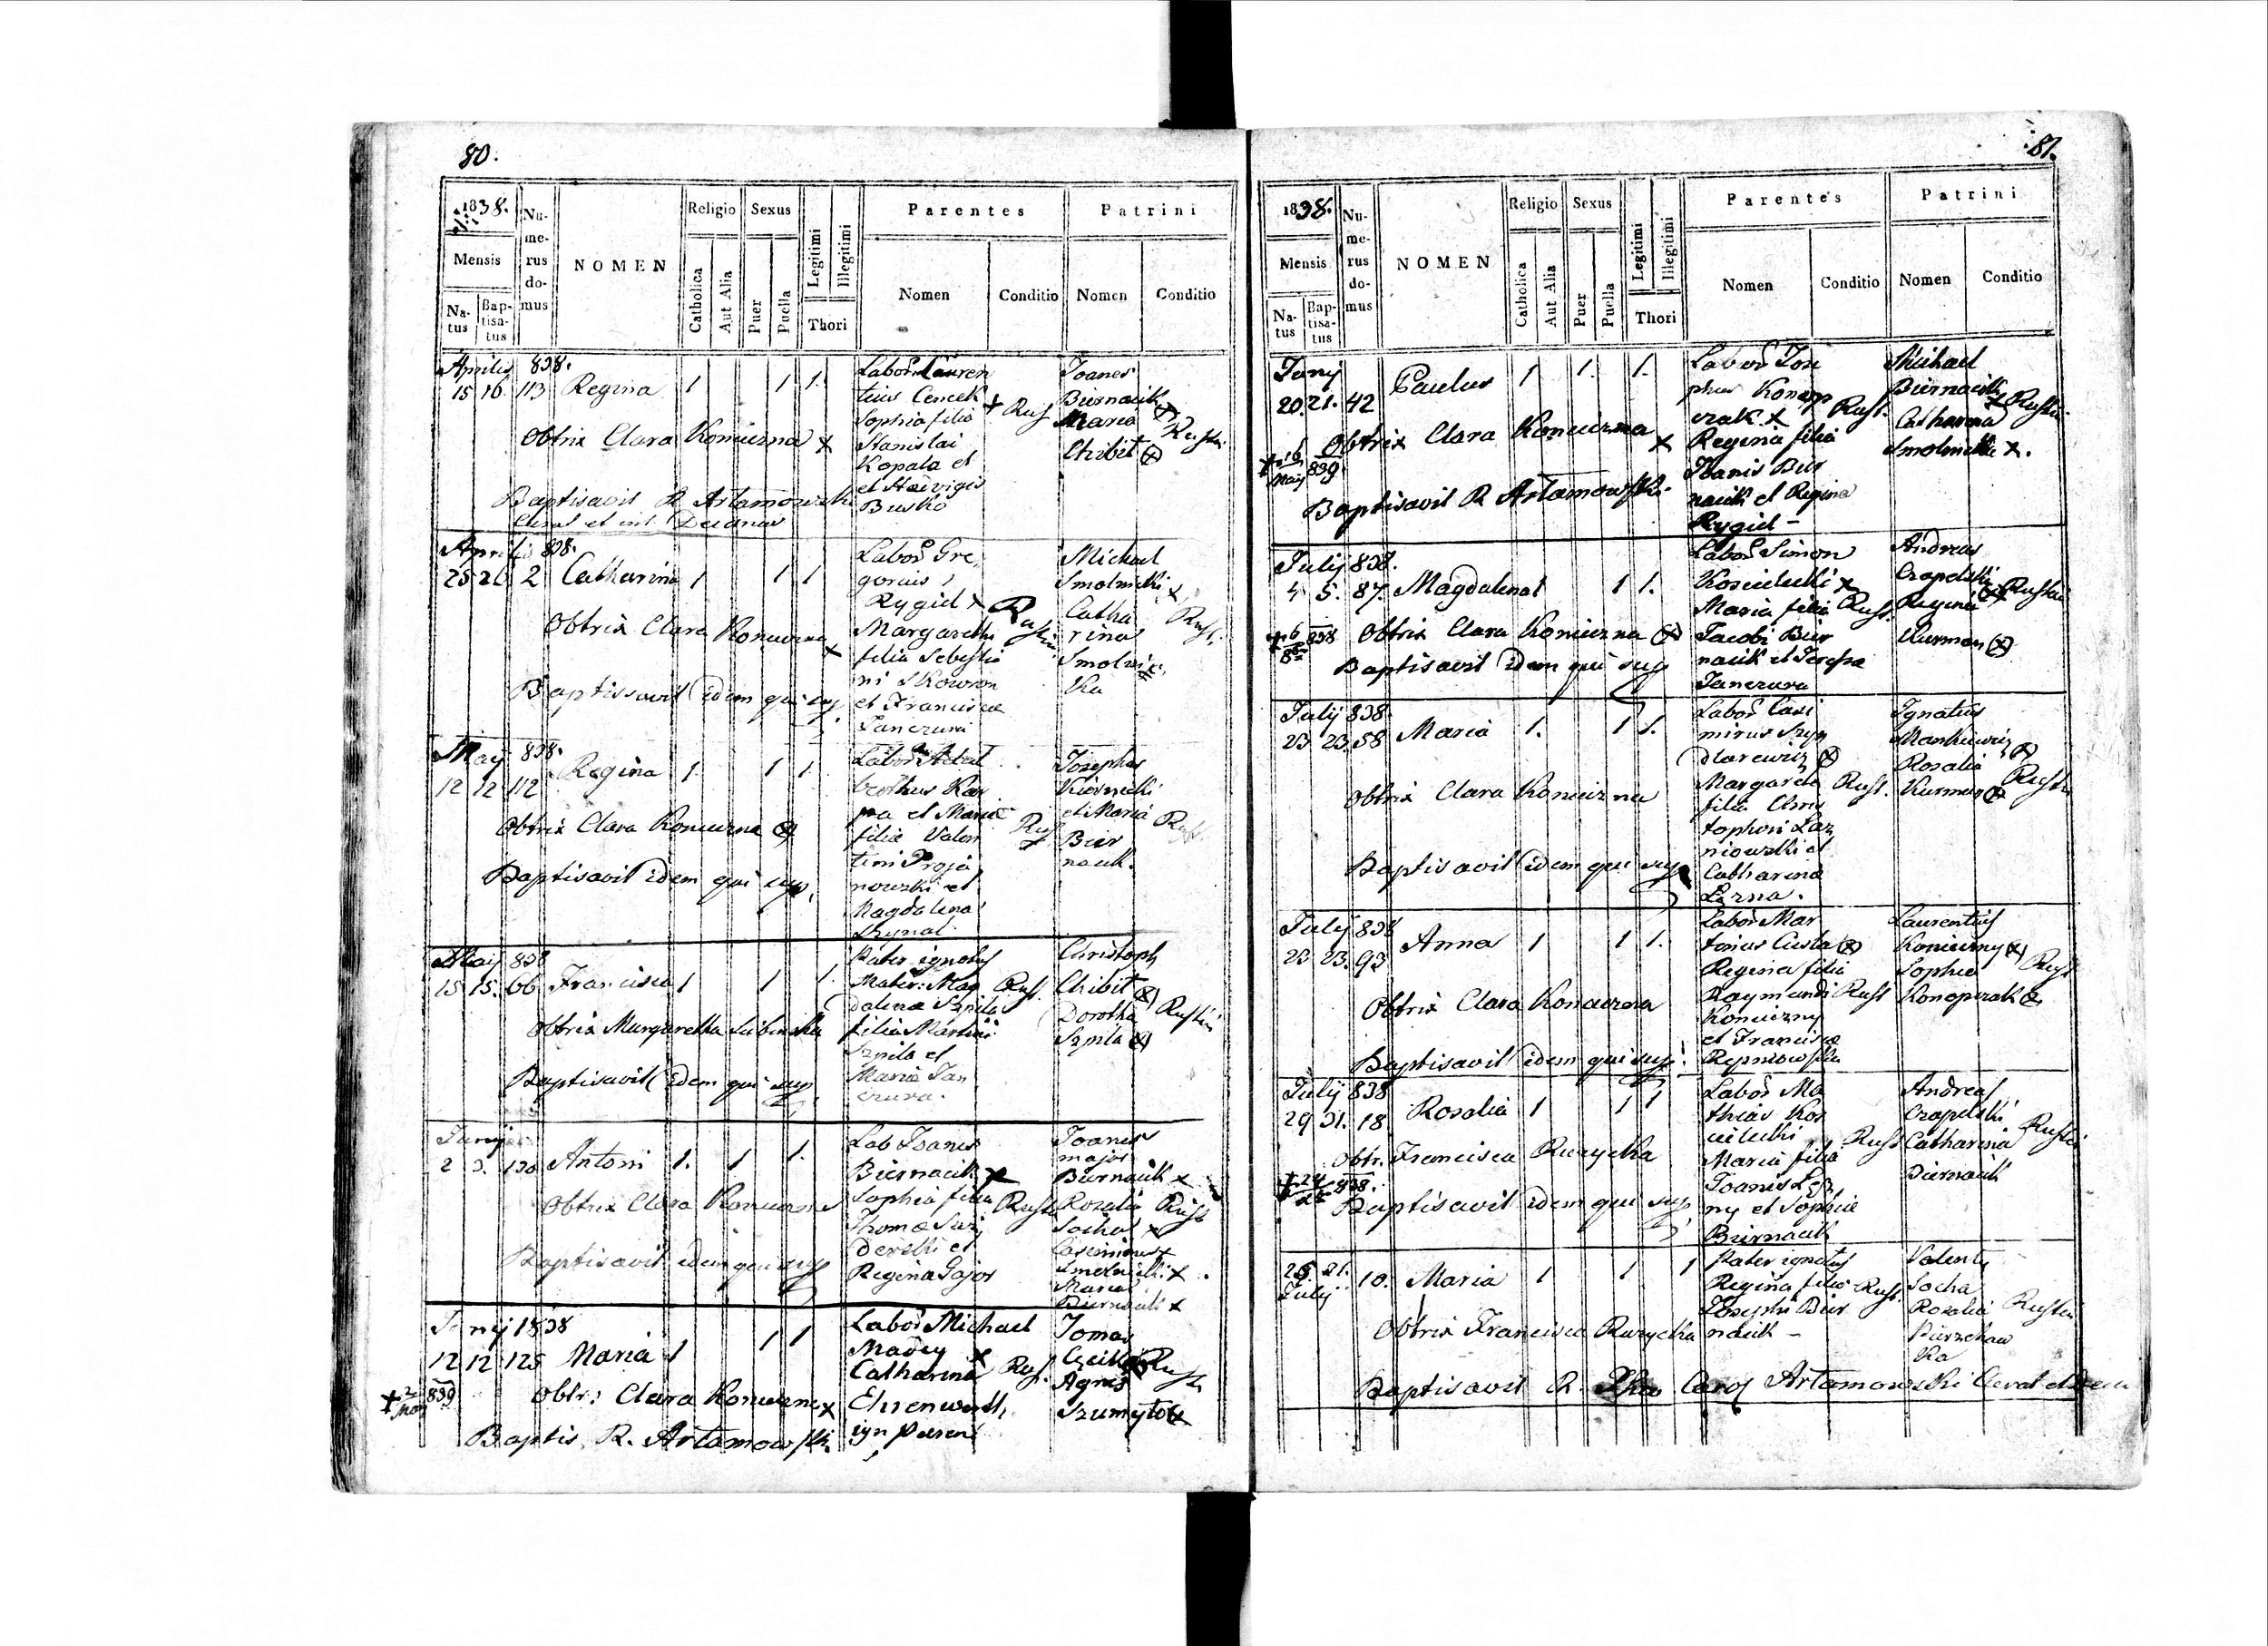 80.
1838.
Mensis
Na-
tus
Bap-
tisa-
tus
Nu-
me-
rus
do-
mus
NOMEN
Religio
Catholica
Aut Alia
Sexus
Puer
Puella
Legitimi
Illegitimi
Thori
Parentes
Nomen
Conditio
Patrini
Nomen
Conditio
Aprilis 838.
15 16 113 Regina 1 1 1.
Obtrix Clara Konieczna x
Baptisavit R Artamowski
Labor Lauren
tius
Sophia filia
Stanislai
Kopala et
et Hedvigis
Busko
Joanes
Biernacik
Maria
Chibit
Aprilis 838.
25 26 2 Catharina 1 1 1
Obtrix Clara Konieczna x
Baptisavit idem qui sup
Labor Gre
gorius
Rygiel x
Margaretha
filia Sebestia
ni Skowron
et Francisca
Janczura
Michael
Smolnicki x
Catha
rina
Smolnic
ka
May 838.
12 12 112 Regina 1. 1 1.
Obtrix Clara Konieczna
Baptisavit idem qui sup.
Labor Adal
bertus Kar
pa et Maria
filia Valen
tini Proja
nowski et
Magdalena
Josephus
et Maria
Bier
nacik.
May 838
15 15. 66 Francisca 1 1 1.
Obtrix Margaretha
Baptisavit idem qui sup
Pater ignotus
Mater: Mag
dalena Szpila
filia Martini
Szpila et
Maria Jan
czura.
Rust.
Christoph
Chibit
Dorotha
Szpila
Junij
2 3. 130 Antoni 1. 1 1.
Obtrix Clara Konieczna
Baptisavit idem qui sup
Lab Joanes
Biernacik x
Sophia filia
Thoma
derski et
Regina Gajos
Joanes
major
Biernacik x
Rozalia
Socha x
Casimirus x
Smolnicki x.
Maria
Biernacik x
Junij 1838
12 12 125 Maria 1 1 1
Obtr: Clara Konieczna x
Baptis. R. Artamowski
Labor Michael
Madey x
Catharina
Ehrenwerth
ign Paren
Tomas
Agnes
839
81.
1838.
Mensis
Na-
tus
Bap-
tisa-
tus
Nu-
me-
rus
do-
mus
NOMEN
Religio
Catholica
Aut Alia
Sexus
Puer
Puella
Legitimi
Illegitimi
Thori
Parentes
Nomen
Conditio
Patrini
Nomen
Conditio
Junij
20. 21. 42 Paulus 1 1. 1.
Obtrix Clara Konieczna x
16 May 839
Baptisavit R Artamowski
Labor Jose
phus Konop
czak x
Regina filia
Joanis Bier
nacik et Regina
Rygiel -
Rust.
Michael
Biernacik
Catharina
Smolnicki x.
July 838.
4 5. 87. Magdalena 1 1 1.
838 Obtrix Clara Konieczna
Baptisavit idem qui sup
Labor Simon
Koscielecki x
Maria filia
Jacobi Bier
nacik et Teressa
Janczura
Rust.
Andreas
Czapelski
Regina
Kurman
July 838.
23 23. 58 Maria 1. 1 1.
Obtrix Clara Konieczna
Baptisavit idem qui sup
Labor Casi
mirus Szyn
dlarewicz
Margareta
filia Chris
tophori Laz
niowski et
Catharina
Rust.
Ignatius
Mankiewicz
Rosalia
Kurman
July 838
23 23. 93 Anna 1 1 1.
Obtrix Clara Konieczna
Baptisavit idem qui sup.
Labor Mar
Regina filia
Raymundi
Konieczny
et Francisca
Rust
Laurentius
Konieczny
Sophia
Konopczak
July 838
29 31. 18 Rosalia 1 1 1
Obtr. Francisca Kurycka
838.
Baptisavit idem qui sup
Labor Ma
thias Kos
cielecki
Maria filia
Joanis
ny et Sophia
Biernacik
Rust
Andreas
Czapelski
Catharina
Biernacik
21. 10. Maria 1 1 1
July
Obtrix Francisca Kurycka
Baptisavit R. Carol Artamowski
Pater ignotus
Regina filia
Josephi Bier
nacik -
Rust.
Valenty
Socha
Rosalia
ka